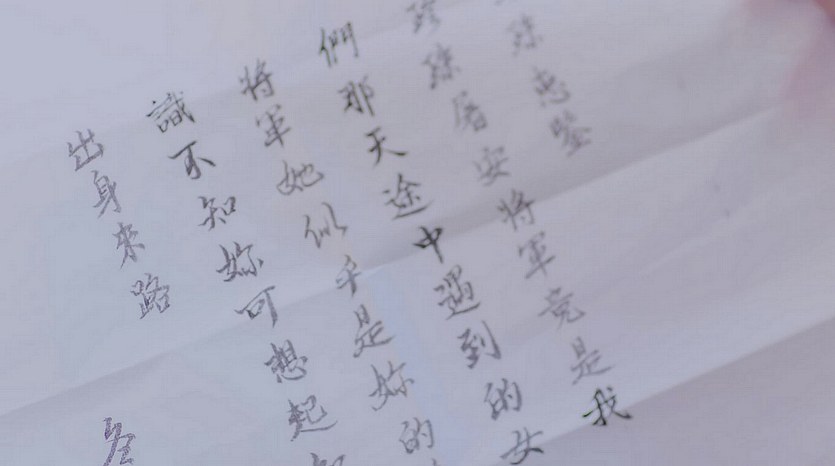 珠惠鑒
珍珠屠安將軍竟是我
們那天途中遇到的女
將軍她似乎是妳的
識不知妳可想起
出身來路